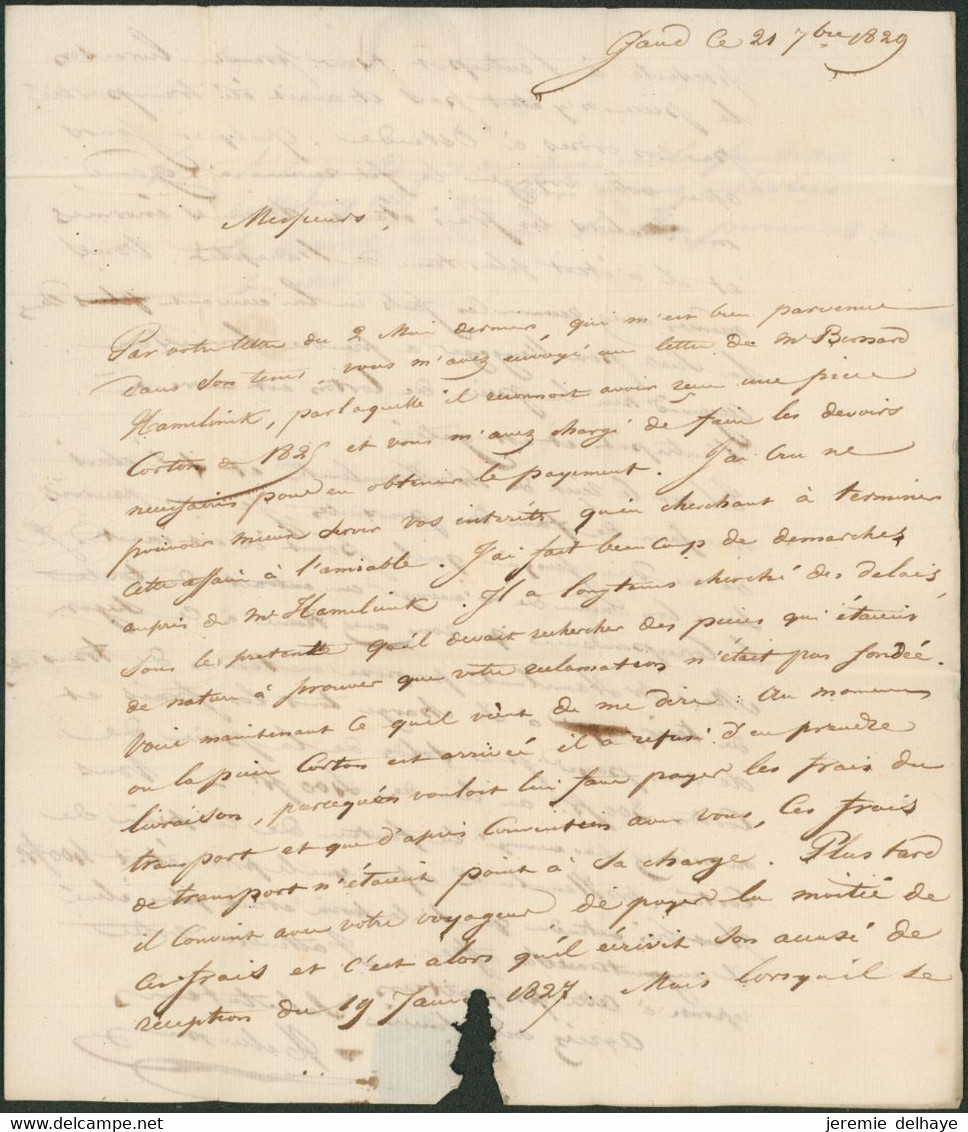 Gand Ce 21 7bre 1829
Messieurs,
Par votre lettre du 2 Mai dernier, qui m'est bien parvenue
dans son tems vous m'avez envoyé une lettre de Mr Bernard
Hamelinck, par laquelle il reconnoit avoir reçu une piece
Corton de 1825 et vous m'avez chargé de faire les devoirs
necessaires pour en obtenir le payement. J'ai cru ne
pouvoir mieux servir vos interêts qu'en cherchant à terminer
cette affaire à l'amiable. J'ai fait beaucoup de demarches
auprès de Mr Hamelinck. Il a longtems cherché des delais
sous le pretexte qu'il devait rechercher des pieces qui étaient
de nature à prouver que votre reclamation n'était pas fondée.
Voici maintenant ce qu'il vient de me dire: Au moment
ou la piece Corton est arrivée il a refusé d'en prendre
livraison, parcequ'on vouloit lui faire payer les frais du
transport et que d'après Convention avec vous, Ces frais
de transport n'étaient point à sa charge. Plus tard
il Convint avec votre voyageur de payer la moitié de
Ces frais et c'est alors qu'il écrivit son accusé de
reception du 19 Janvier 1827. Mais lorsqu'il se
jeremie delhaye